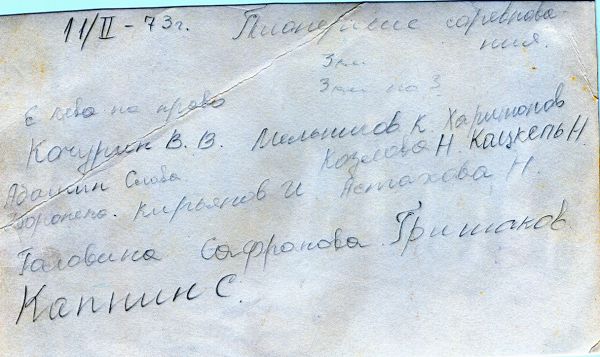 11/II - 73г. Пионерские соревнова-
ния.
3 км
3 км по 3
С лева на право
Кочурин В. В. Мельников К. Харитонов
Адашин Слава Козлова Н. Кацкель Н.
Кирьянов И Астахова Н.
Головина Сафронова Гришаков
Капнин С.